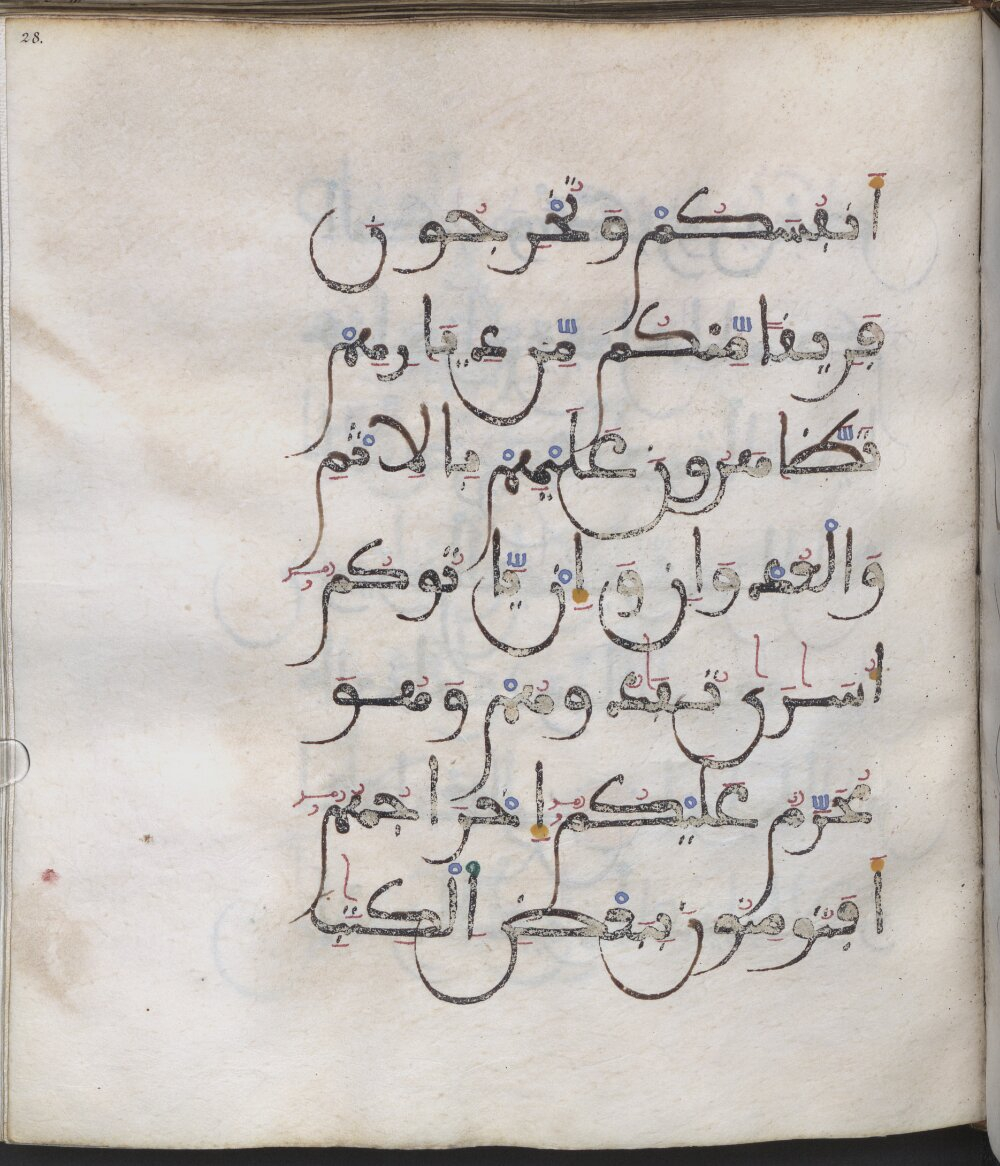 28.
أَنفُسَكُمْ وَتُخْرِجُونَ
فَرِيقًا مِّنكُم مِّن دِيَارِهِمْ
تَظَّاهَرُونَ عَلَيْهِمْ بِالْإِثْمِ
وَالْعُدْوَانِ وَإِنْ يَّاتُوكُمْ
أُسَٰرَىٰ تُفَٰدُوهُمْ وَهُوَ
مُحَرَّمٌ عَلَيْكُمْ إِخْرَاجُهُمْ
أَفَتُومِنُونَ بِبَعْضِ الْكِتَٰبِ